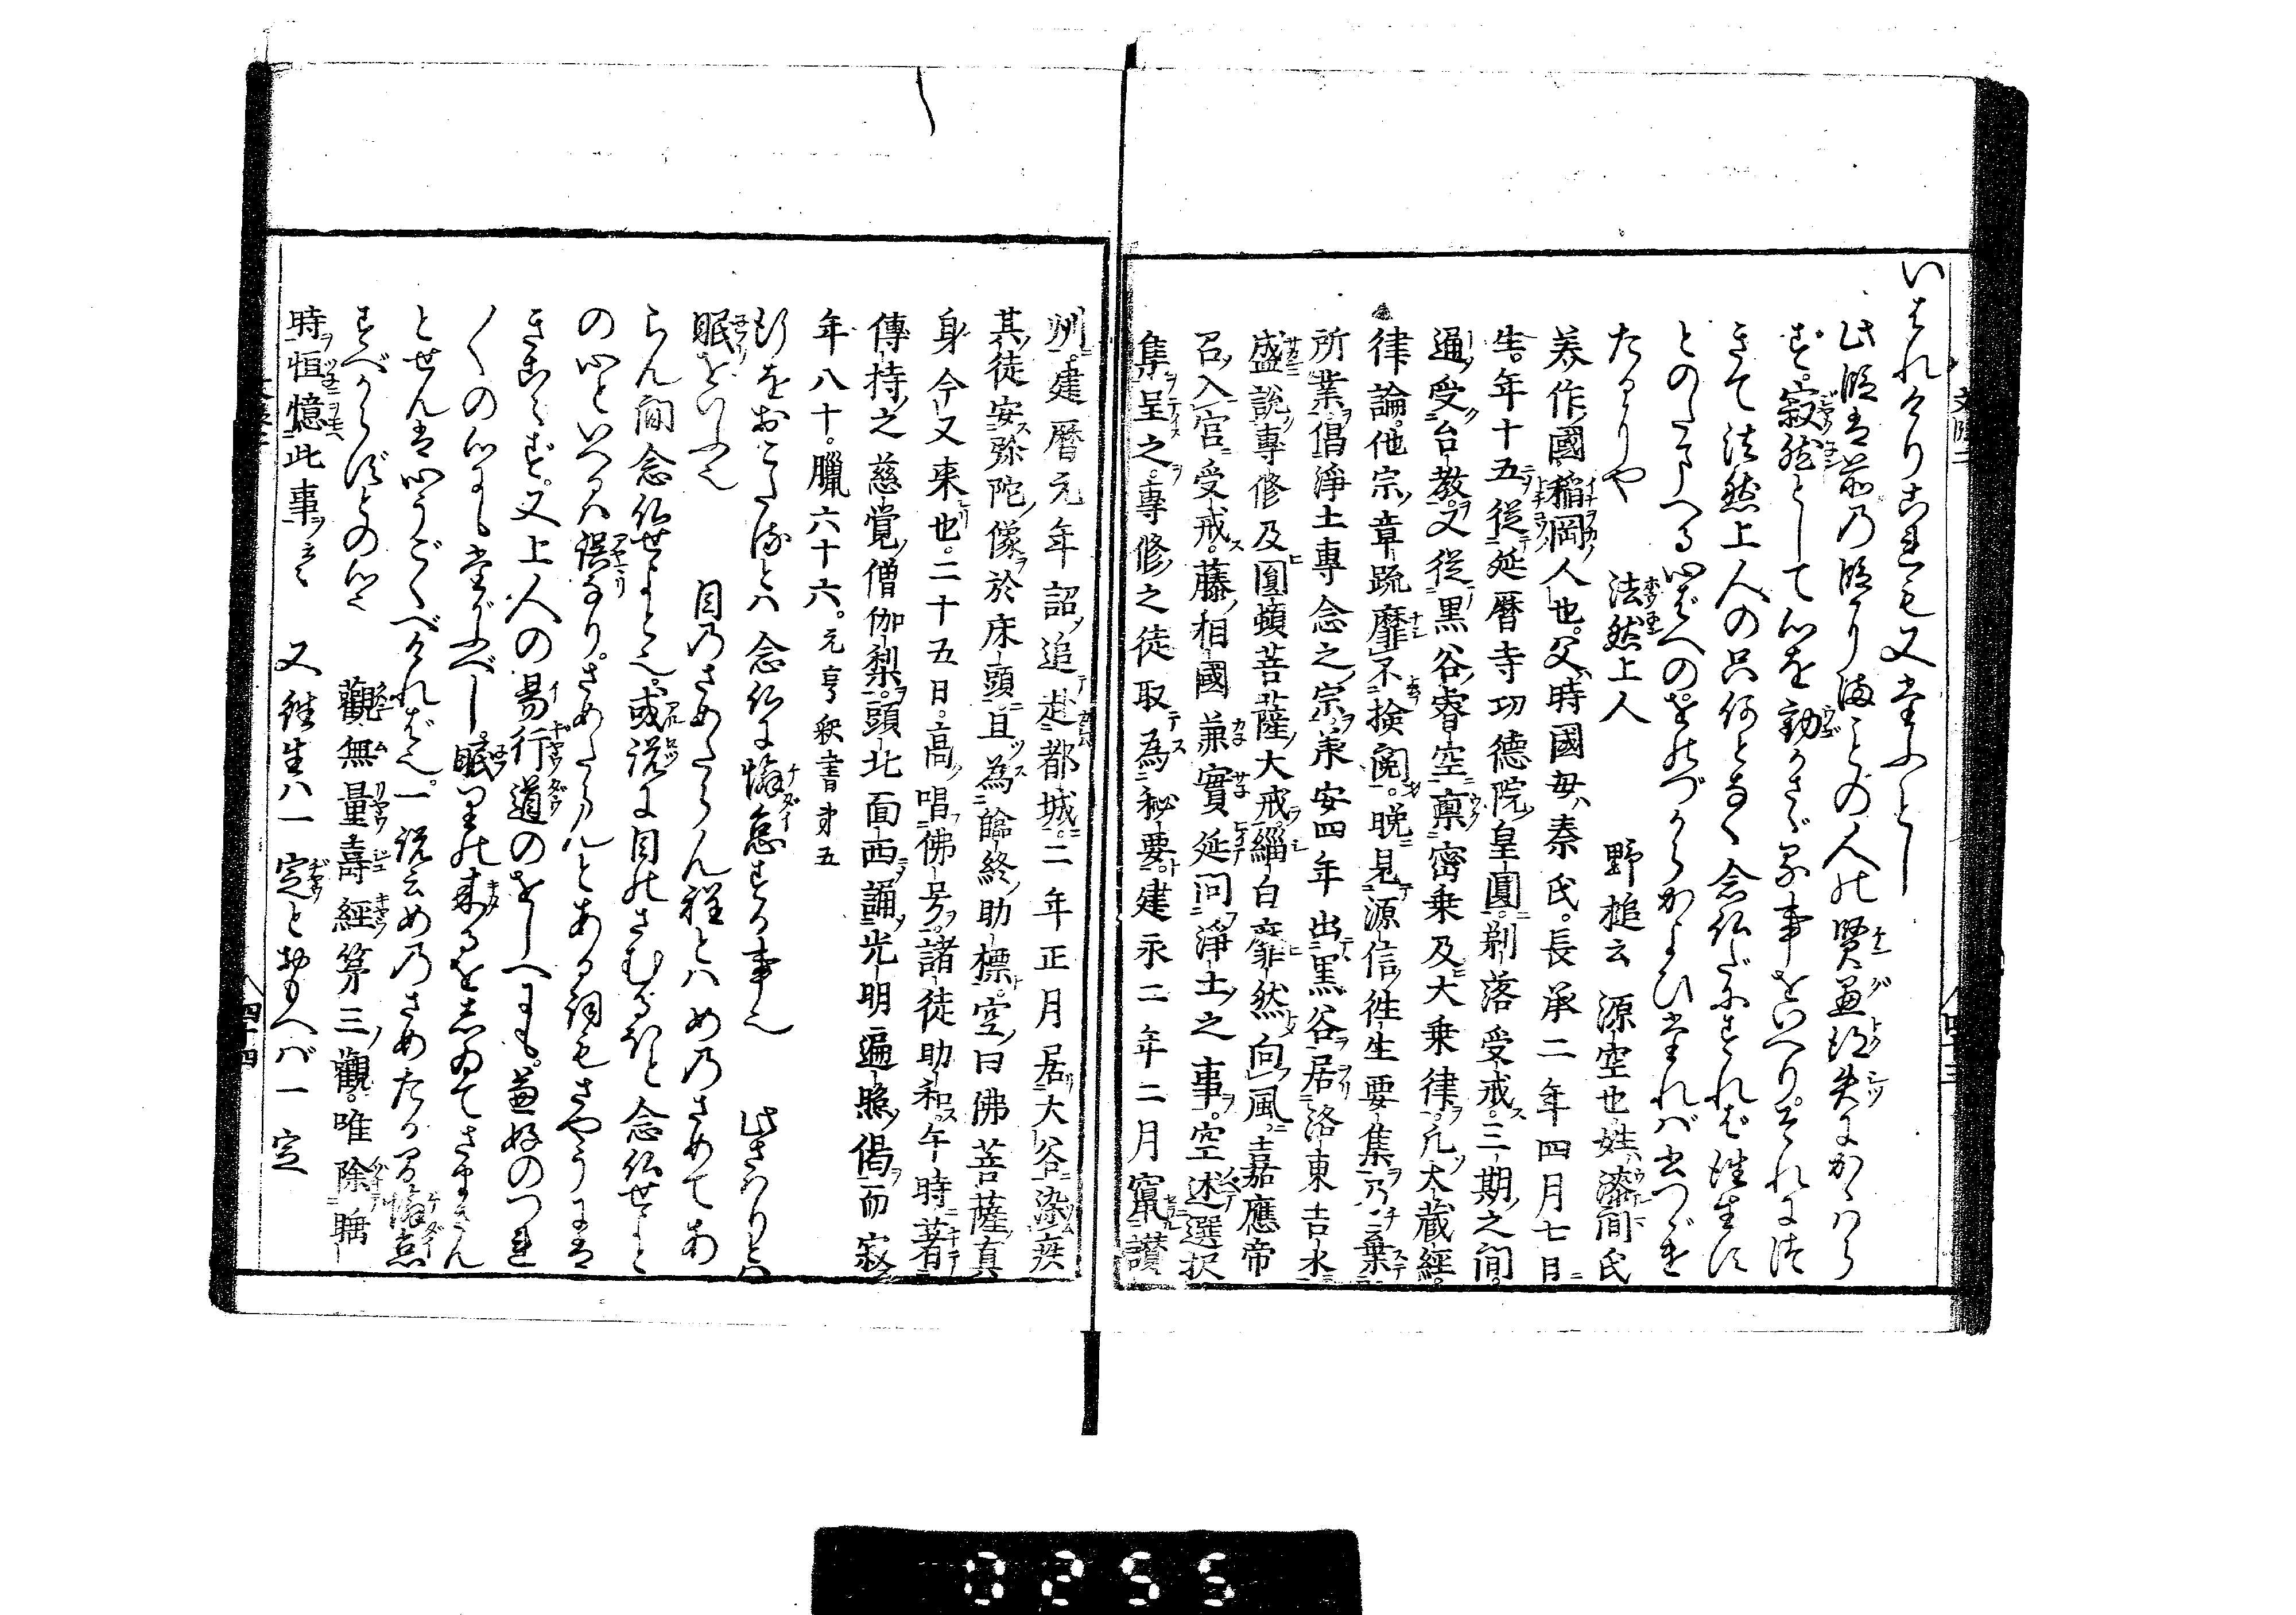 いはれけりこれも又たふとし
此段は前の段りまことの人の賢愚得失にかゝはら
ず寂然として心を動かさゞる事をいへりそれにつ
きて法然上人の只何となく念仏だにすれば往生す
とのたまへる心ばへのをのづからかよひたればかきつゞけ
たるりや　法然上人　野槌云源空也姓漆間氏
美作國稲岡人也父時國母秦氏長承二年四月七日
生年十五從延暦寺功德院皇圓剃落受戒三期之間
通受台教又從黒谷睿空稟密乗及大乗律凡大蔵經
律論他宗章疏靡不撿閲晩見源信徃生要集乃棄
所業倡淨土專念之宗兼安四年出黒谷居洛東吉水
盛說專修及圓頓菩薩大戒緇白靡然向風嘉應帝
召入宮受戒藤相國兼實延問淨土之事空述選択
集呈之專修之徒取為秘要建永二年二月竄讃
州建暦元年詔追赴都城二年正月居大谷染疾
其徒安弥陀像於床頭且為臨終助標空曰佛菩薩真
身今又来也二十五日高唱佛号諸徒助和午時著
傳持之慈覚僧伽梨頭北面西誦光明遍照偈而寂
年八十臘六十六元亨釈書第五
行をおこたるとは念仏に懈怠する事也　此さはりとは
眠をいふ也　目のさめたらん程とはめのさめてあ
らん間念仏せよと也或説に目のさむるほと念仏せよと
の心といへるは誤なりさめたらんとある詞もさやうには
きこえず又上人の易行道のをしへにも兼好のつれ
〱の心にも叶がふべし眠りの来るをしゐてさまさん
とせんは心うごくべければ也一説云めのさめたる間懈怠
すべからずとの心也　觀無量壽經第三觀唯除睡
時恒憶此事云々　又往生は一定と おもへば一定
四十三
四十四
0255